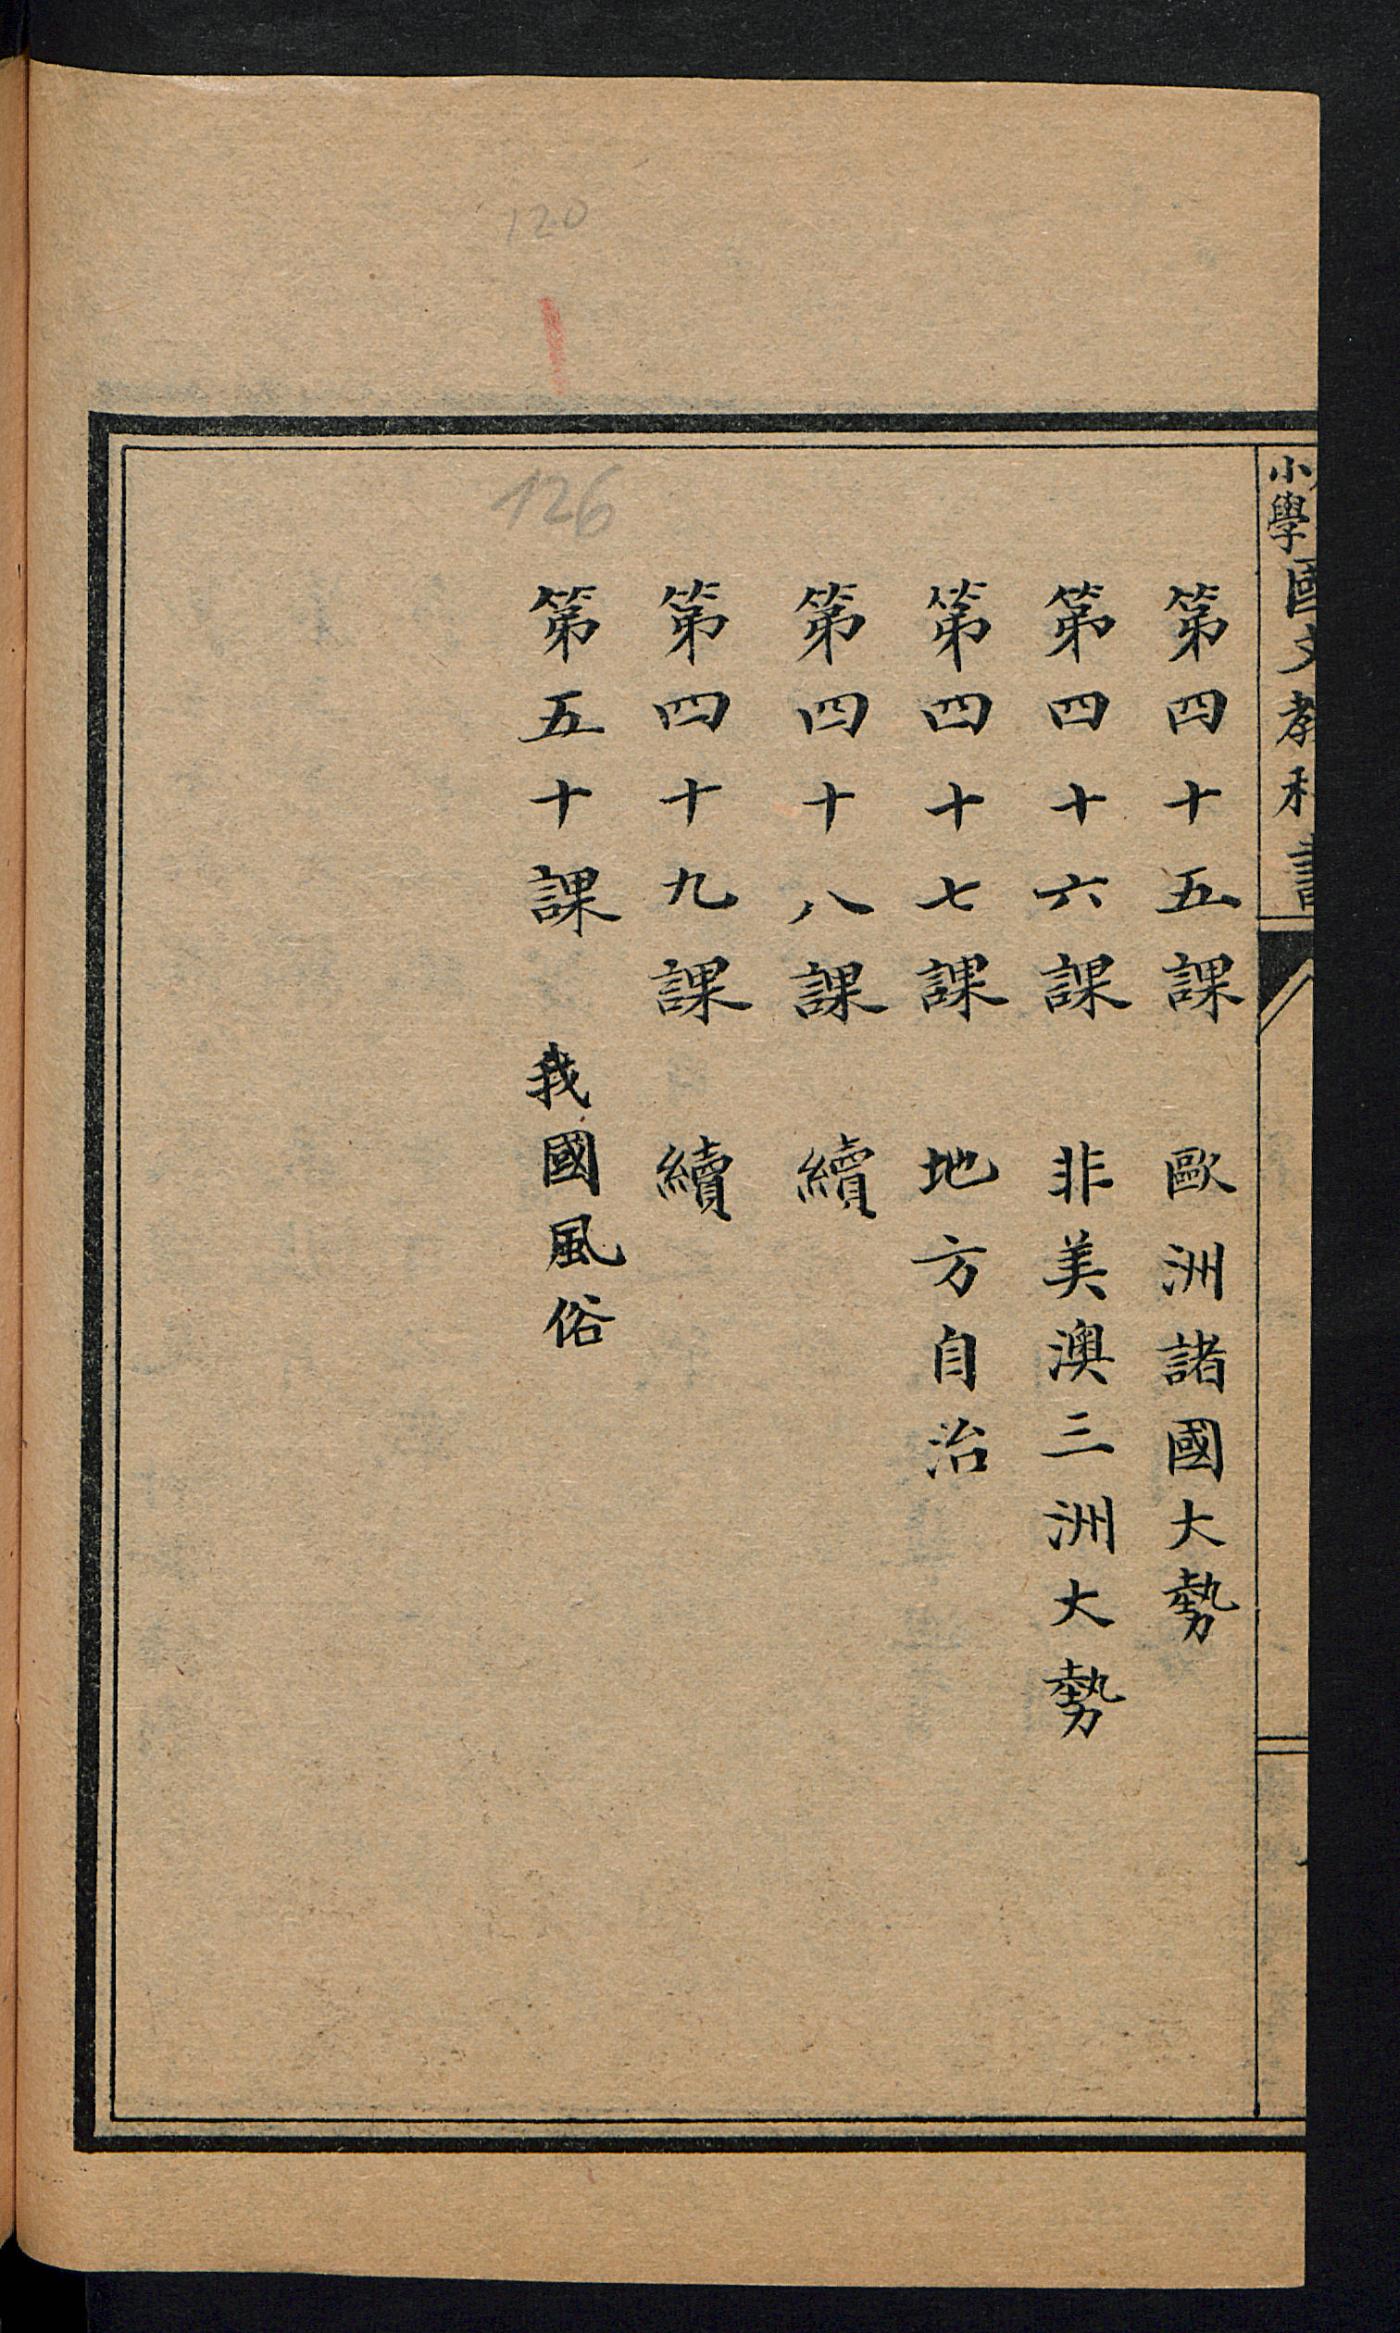 小學國文教科書
第四十五課　歐洲諸國大勢
第四十六課　非美澳三洲大勢
第四十七課　地方自治
第四十八課　續
第四十九課　續
第五十課　我國風俗
120
126